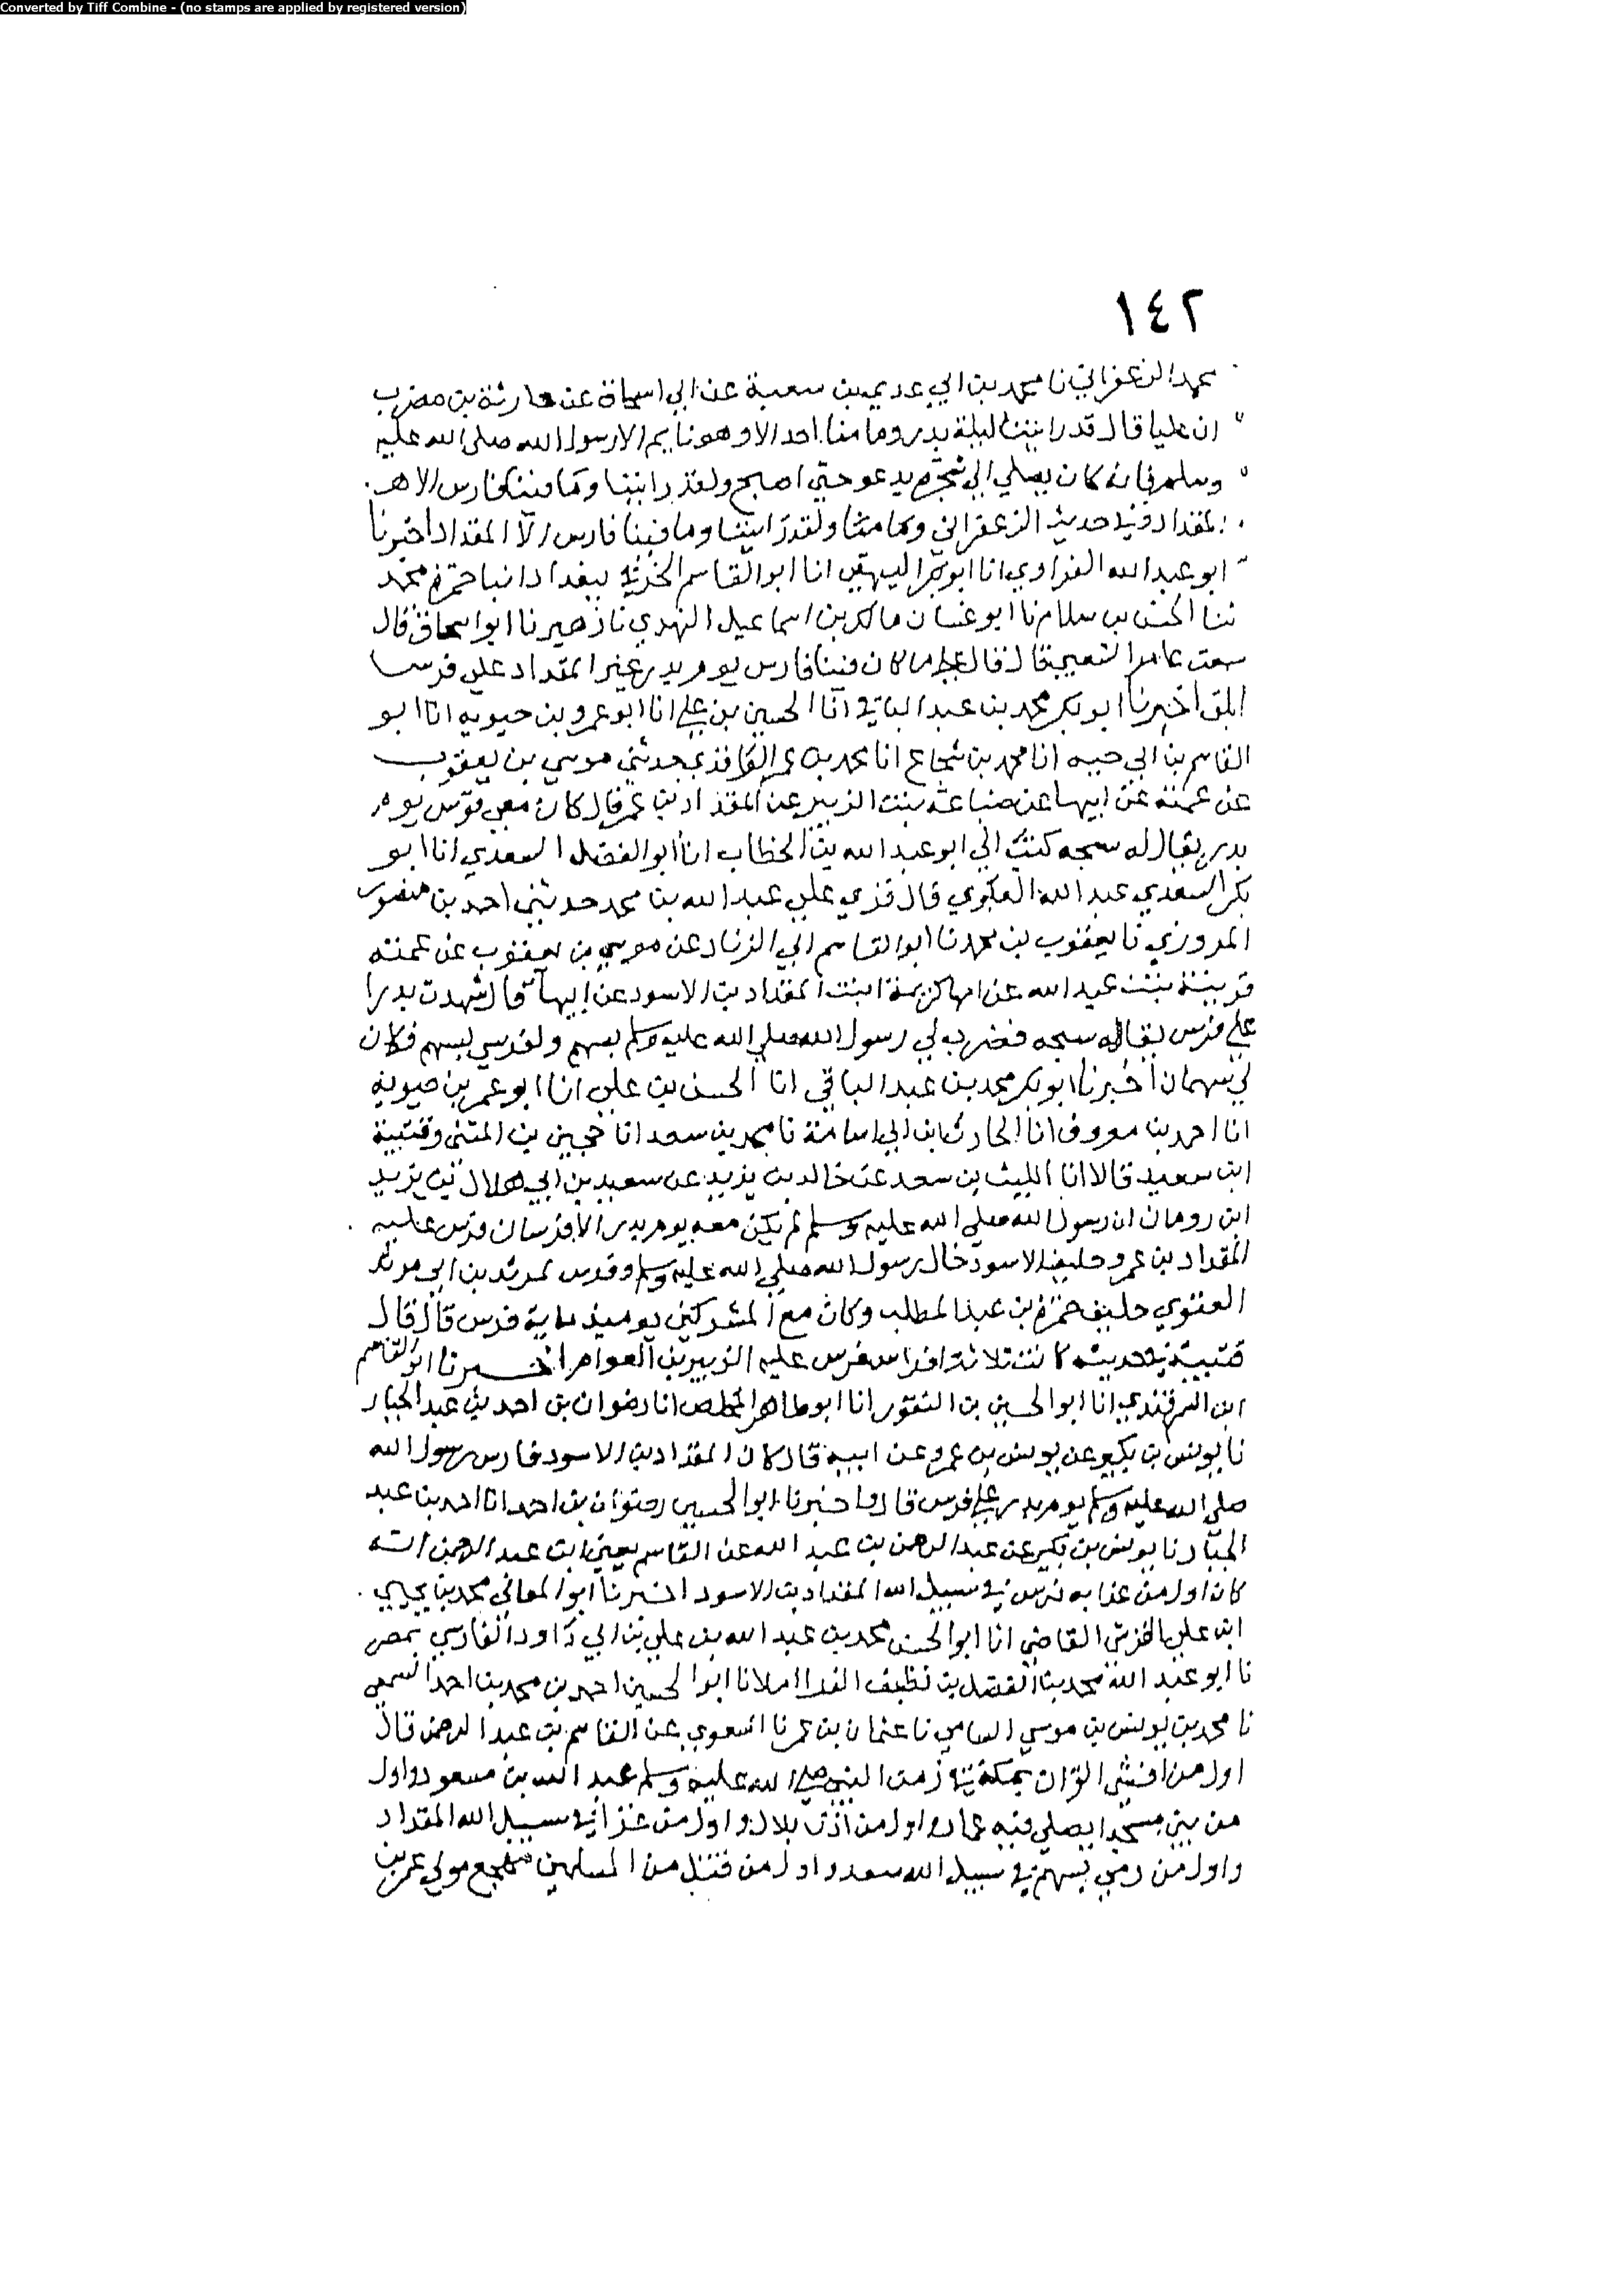 Converted by Tiff Combine - (no stamps are applied by registered version)
١٤٢
محمد الزعفراني نا محمد بن ابي عدي بن سعبة عن ابي اسحاق عن حارثة بن مضرب
ان عليا قال قد رايتنا ليلة بدر وما منا احد الا وهو نايم الا رسول الله صلى الله عليه
وسلم فانه كان يصلي الي شجرة يدعو حتي اصبح ولقد رايتنا وما فينا فارس الا هـ
المقداد وفي حديث الزعفراني وما منا ولقد رايتنا وما فينا فارس الا المقداد اخبرنا
ابو عبد الله الفراوي انا ابو بكر البيهقي انا ابو القاسم الخرقي ببغداد انبا حمزة محمد
ثنا الحسن بن سلام نا ابو غسان مالك بن اسماعيل النهدي نا زهير نا ابو اسحاق قال
سمعت عامر الشعبي قال قال علي ما كان فينا فارس يوم بدر غير المقداد علي فرس
ابلق اخبرنا ابو بكر محمد بن عبد الباقي انا الحسين بن علي انا ابو عمرو بن حيويه انا ابو
القاسم بن ابي حبيه انا محمد بن شجاع انا محمد بن عمر الواقدي حدثني موسي بن يعقوب
عن عمته عن ابيها عن ضباعة بنت الزبير عن المقداد بن عمر قال كان معي فرس يوم
بدر يقال له سبحه كتب الي ابو عبد الله بن الحطاب انا ابو الفضل السعدي انا ابو
بكر السعدي عبد الله العكبوي قال قري علي عبد الله بن محمد حدثني احمد بن منصور
المروزي نا يعقوب بن محمد نا ابو القاسم ابي الزناد عن موسي بن يعقوب عن عمته
قريبة بنت عبد الله عن امها كريمة ابنت المقداد بن الاسود عن ابيها قال شهدت بدرا
علي فرس يقال له سبحه فضرب لي رسول الله صلي الله عليه وسلم بسهم ولفرسي بسهم فكان
لي سهمان اخبرنا ابو بكر محمد بن عبد الباقي انا الحسن بن علي انا ابو عمر بن حيوية
انا احمد بن معروف انا الحارث ابن ابي اسامة نا محمد بن سعد انا حجين بن المثنى وقتيبة
ابن سعيد قالا انا الليث بن سعد عن خالد بن يزيد عن سعيد بن ابي هلال بن يزيد
ابن رومان ان رسول الله صلي الله عليه وسلم لم يكن معه يوم بدر الا فرسان فرس عليه
المقداد بن عمرو حليف الاسود خال رسول الله صلي الله عليه وسلم وفرس لمرثد بن ابي مرثد
الغنوي حليف حمزة بن عبد المطلب وكان مع المشركين يوميذ ماية فرس قال قال
قتيبة في حديثه كانت ثلاثة افراس فرس عليه الزبير بن العوام اخبرنا ابو القاسم
ابن السمرقندي انا ابو الحسين بن النقور انا ابو طاهر المخلص انا رضوان بن احمد بن عبد الجبار
نا يونس بن بكير عن يونس بن عمرو عن ابيه قال كان المقداد بن الاسود فارس رسول الله
صلي الله عليه وسلم يوم بدر علي فرس قال واخبرنا ابو الحسين رضوان بن احمد انا احمد بن عبد
الجبار نا يونس بن بكير عن عبد الرحمن بن عبد الله عن القاسم يعني ابن عبد الرحمن انه
كان اول من عدا به فرس في سبيل الله المقداد بن الاسود اخبرنا ابو المعالي محمد بن يحيي
ابن علي القرشي القاضي انا ابو الحسن محمد بن عبد الله بن علي بن ابي داود الفارسي بمصر
نا ابو عبد الله محمد بن الفضل بن نظيف الفرا املا نا ابو الحسين احمد بن محمد بن احمد
نا محمد بن يونس بن موسي السامي نا عثمان بن عمر نا المسعودي عن القاسم بن عبد الرحمن قال
اول من افشي القران بمكة في زمن النبي صلي الله عليه وسلم عبد الله بن مسعود واول
من بني مسجدا يصلي فيه عمار واول من اذن بلال واول من غزا في سبيل الله المقداد
واول من رمي بسهم في سبيل الله سعد واول من قتل من المسلمين مهجع مولي عمر بن